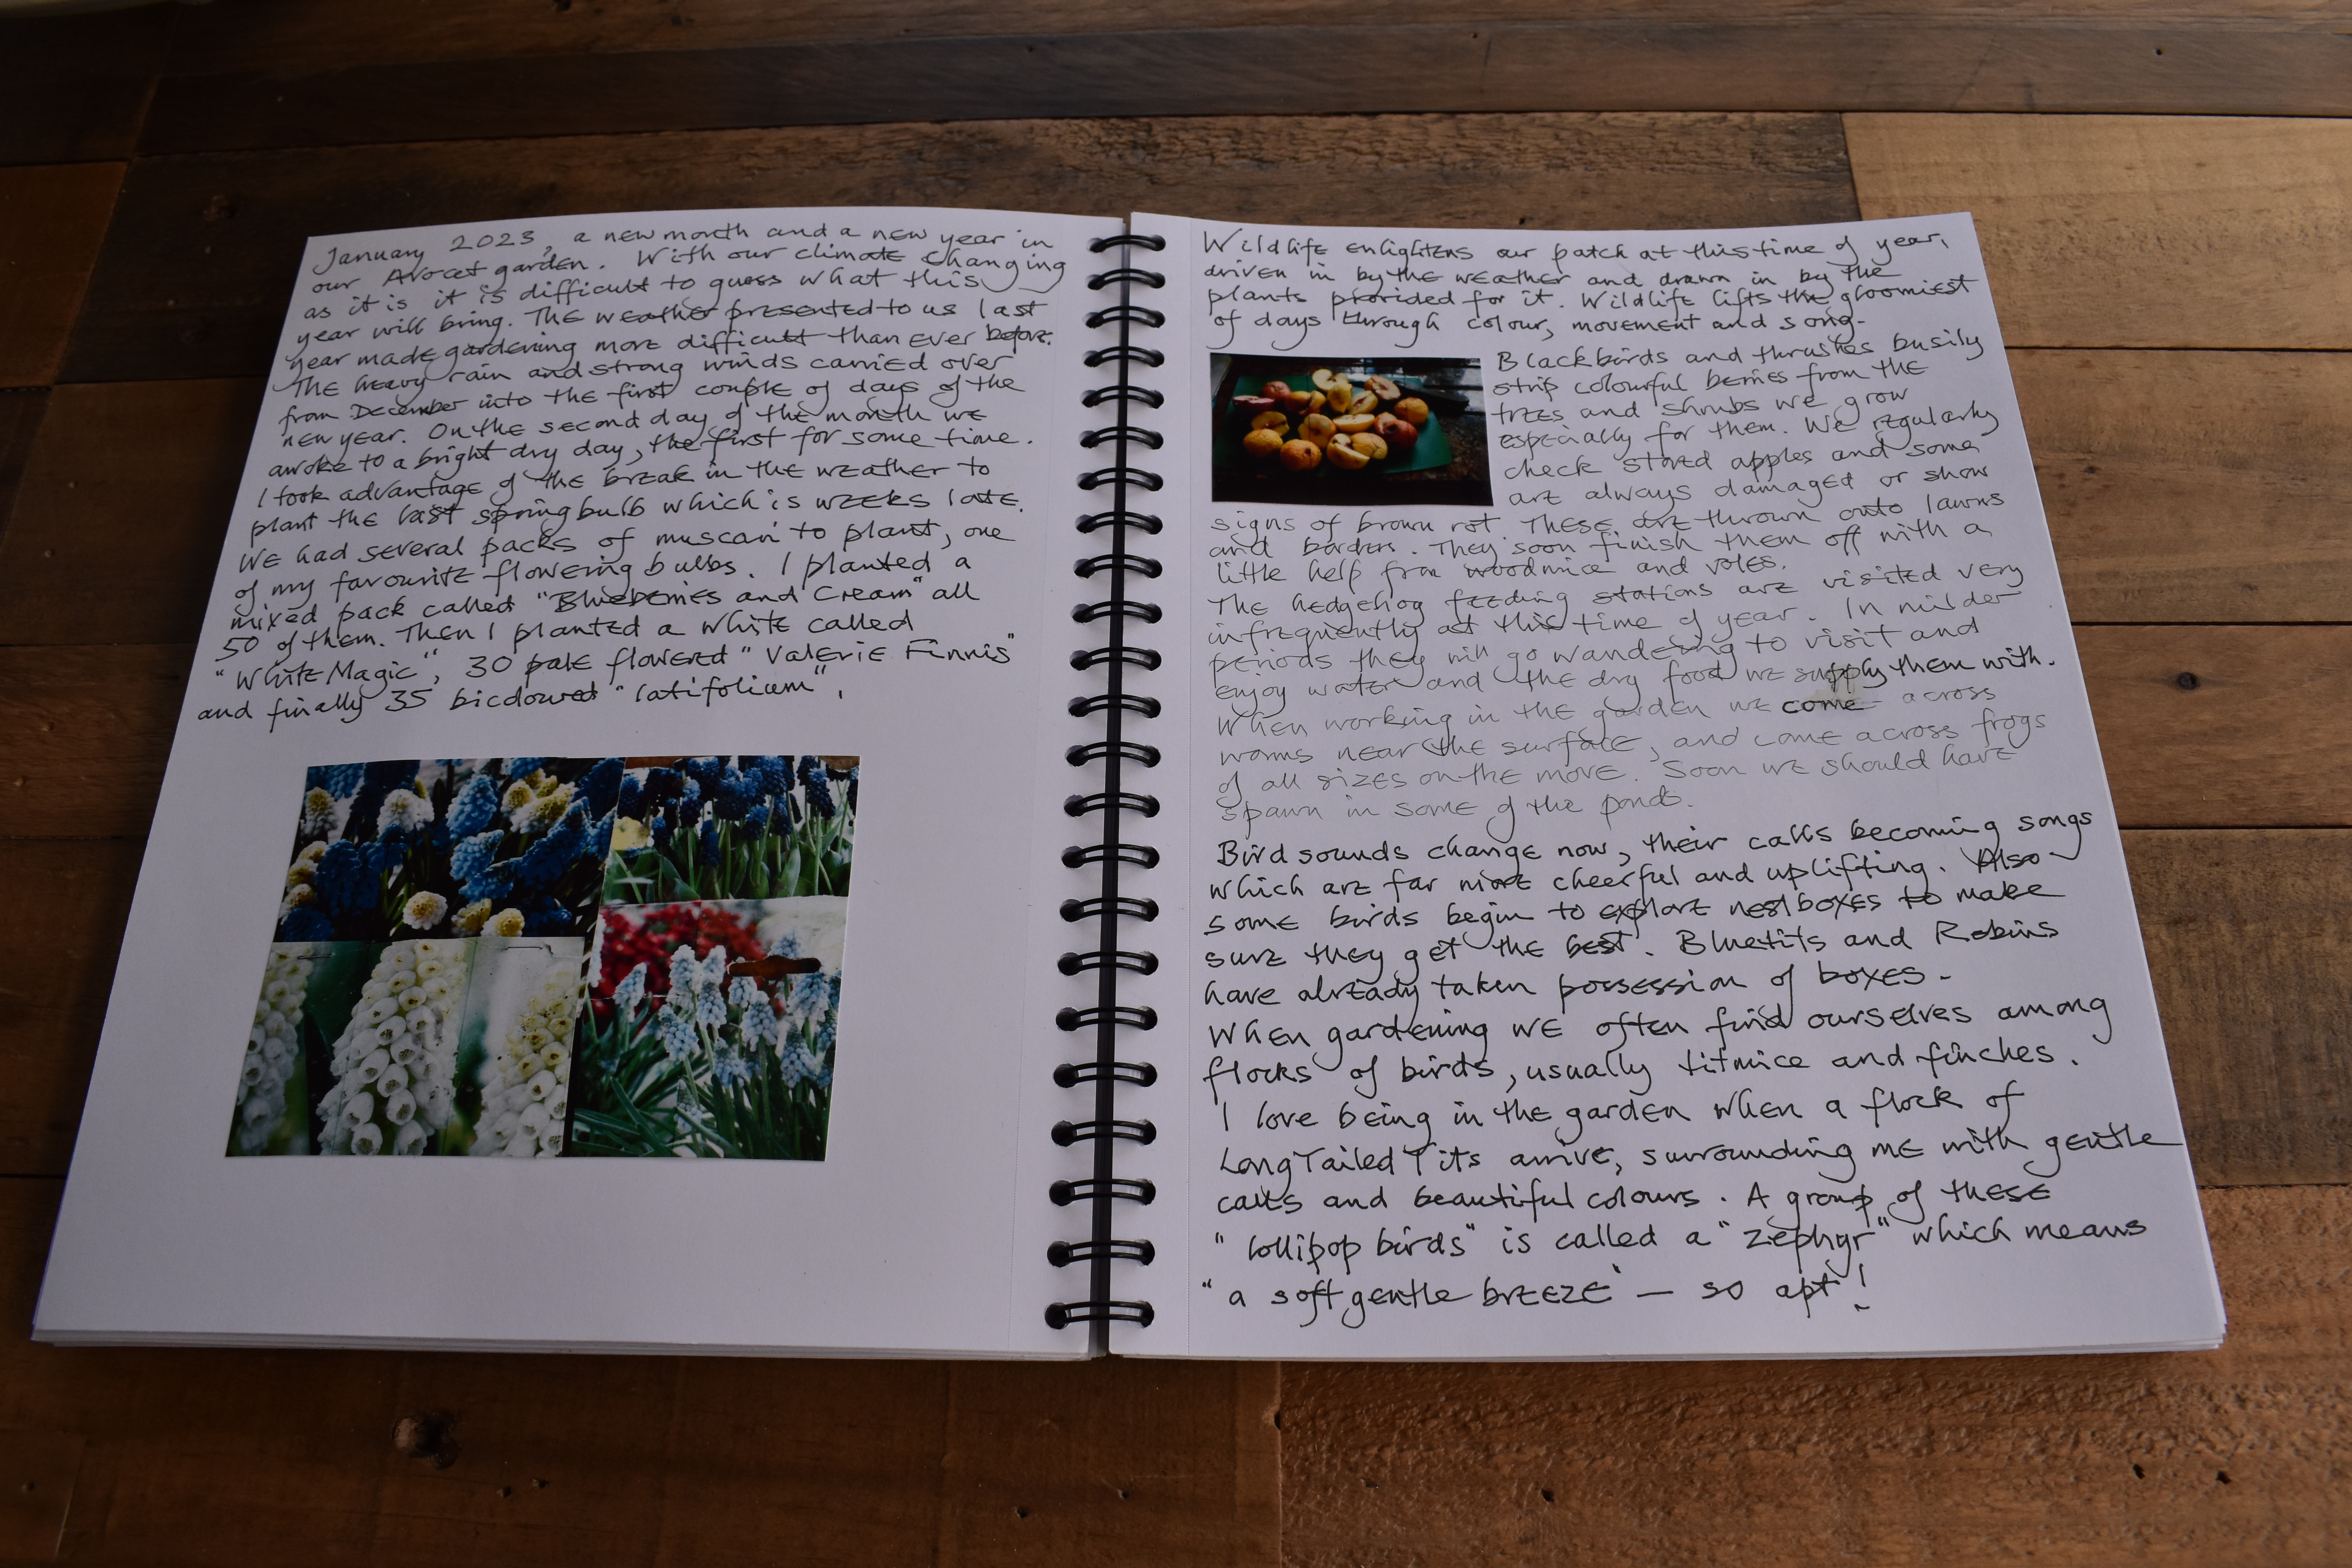 January 2023, a new month and a new year in
our Avocet garden. With our climate changing
as it is it is difficult to guess what this
year will bring. The weather presented to us last
year made gardening more difficult than ever before.
The heavy rain and strong winds carried over
from December into the first couple of days of the
new year. On the second day of the month we
awoke to a bright dry day, the first for some time.
I took advantage of the break in the weather to
plant the last spring bulb which is weeks late.
We had several packs of muscari to plant, one
of my favourite flowering bulbs. I planted a
mixed pack called "Blueberries and Cream" all
50 of them. Then I planted a white called
"White Magic", 30 pale flowered "Valerie Finnis"
and finally 35 bicoloured "latifolium".
Wildlife enlightens our patch at this time of year,
driven in by the weather and drawn in by the
plants provided for it. Wildlife lifts the gloomiest
of days through colour, movement and song.
Blackbirds and thrushes busily
strip colourful berries from the
trees and shrubs we grow
especially for them. We regularly
check stored apples and some
are always damaged or show
signs of brown rot. These are thrown onto lawns
and borders. They soon finish them off with a
little help from woodmice and voles.
The hedgehog feeding stations are visited very
infrequently at this time of year. In milder
periods they will go wandering to visit and
enjoy water and the dry food we supply them with.
When working in the garden we come across
worms near the surface, and come across frogs
of all sizes on the move. Soon we should have
spawn in some of the ponds.
Bird sounds change now, their calls becoming songs
which are far more cheerful and uplifting. Also
some birds begin to explore nestboxes to make
sure they get the best. Bluetits and Robins
have already taken possession of boxes.
When gardening we often find ourselves among
flocks of birds, usually titmice and finches.
I love being in the garden when a flock of
Long Tailed Tits arrive, surrounding me with gentle
calls and beautiful colours. A group of these
"lollipop birds" is called a "zephyr" which means
"a soft gentle breeze" — so apt!